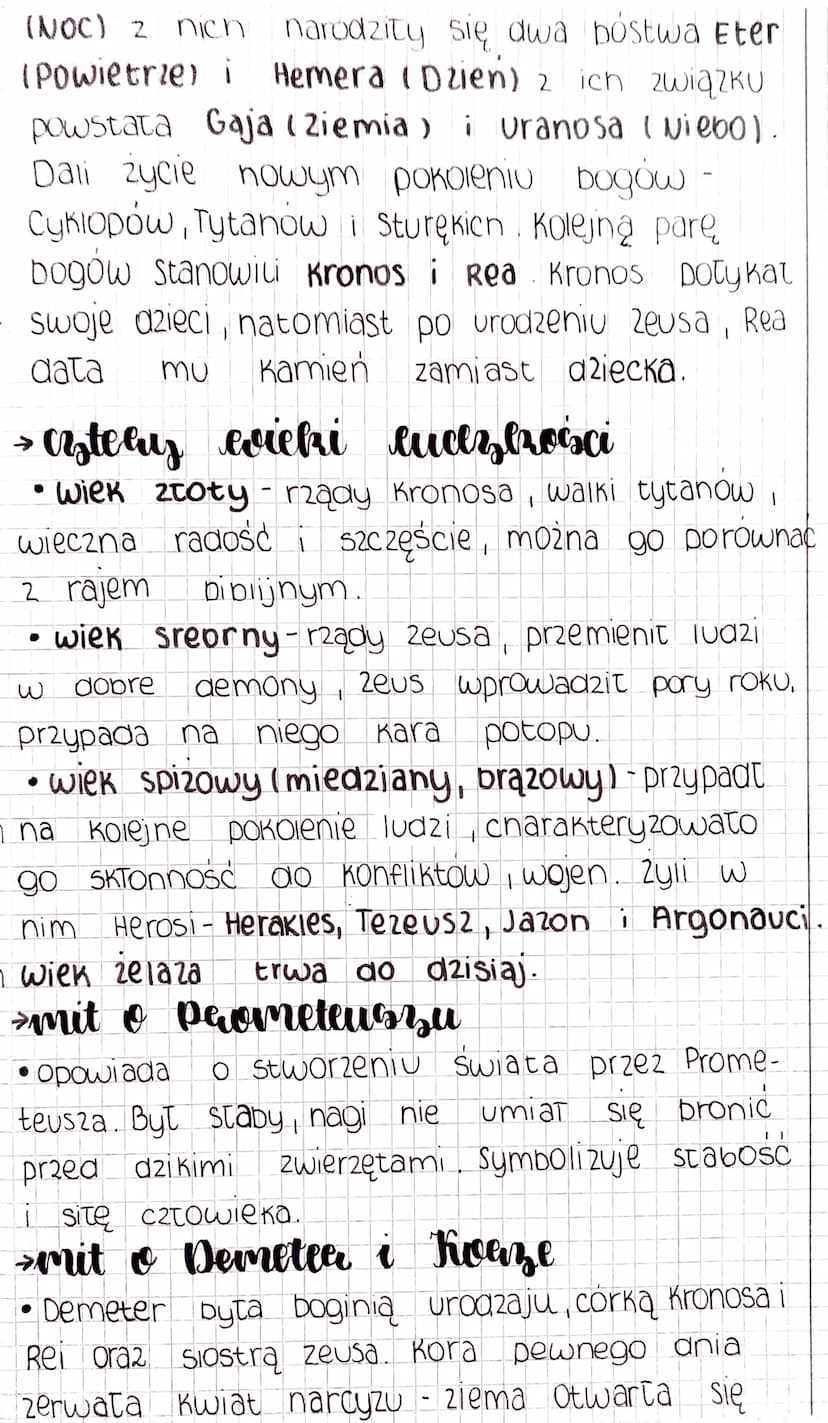 (NOC) z nich narodziły się dwa bóstwa Eter
(Powietrze) i Hemera (Dzień) z ich związku
powstała Gaja (Ziemia) i Uranosa (Niebo).
Dali życie nowym pokoleniu bogów -
Cyklopów, Tytanów i Sturękich. Kolejną parę
bogów stanowili Kronos i Rea. Kronos połykał
swoje dzieci, natomiast po urodzeniu Zeusa, Rea
dała mu kamień zamiast dziecka.
→ cztery wieki ludzkości
• wiek złoty - rządy Kronosa, walki tytanów,
wieczna radość i szczęście, można go porównać
z rajem biblijnym.
• wiek srebrny - rządy Zeusa, przemienił ludzi
w dobre demony, Zeus wprowadził pory roku,
przypada na niego kara potopu.
• wiek spiżowy (miedziany, brązowy) - przypadł
na kolejne pokolenie ludzi, charakteryzowało
go skłonność do konfliktów, wojen. Żyli w
nim Herosi - Herakles, Tezeusz, Jazon i Argonauci.
wiek żelaza trwa do dzisiaj.
→ mit o Prometeuszu
• opowiada o stworzeniu świata przez Prome-
teusza. Był słaby, nagi nie umiał się bronić
przed dzikimi zwierzętami. Symbolizuje słabość
i siłę człowieka.
→ mit o Demeter i Korze
• Demeter była boginią urodzaju, córką Kronosa i
Rei oraz siostrą Zeusa. Kora pewnego dnia
zerwała kwiat narcyzu - ziema otwarła się